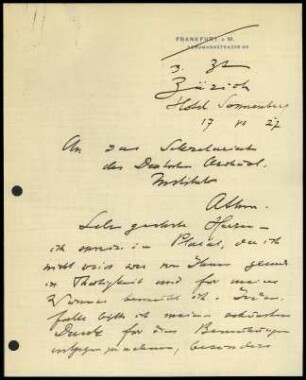 FRANKFURT a. M.
z. Zt.
Zürich
Hotel Sonnenberg
17 VI 27
An das Sekretariat
des Deutschen Archäol.
Instituts
Athen.
Sehr geehrte Herren
ich in Plural, da ich
nicht weiss wer von Ihnen gerade
in Thätigkeit und für meine
bemüht ist.
falls bitte meinen
Dank für die Bemühungen
entgegenzunehmen, besonders